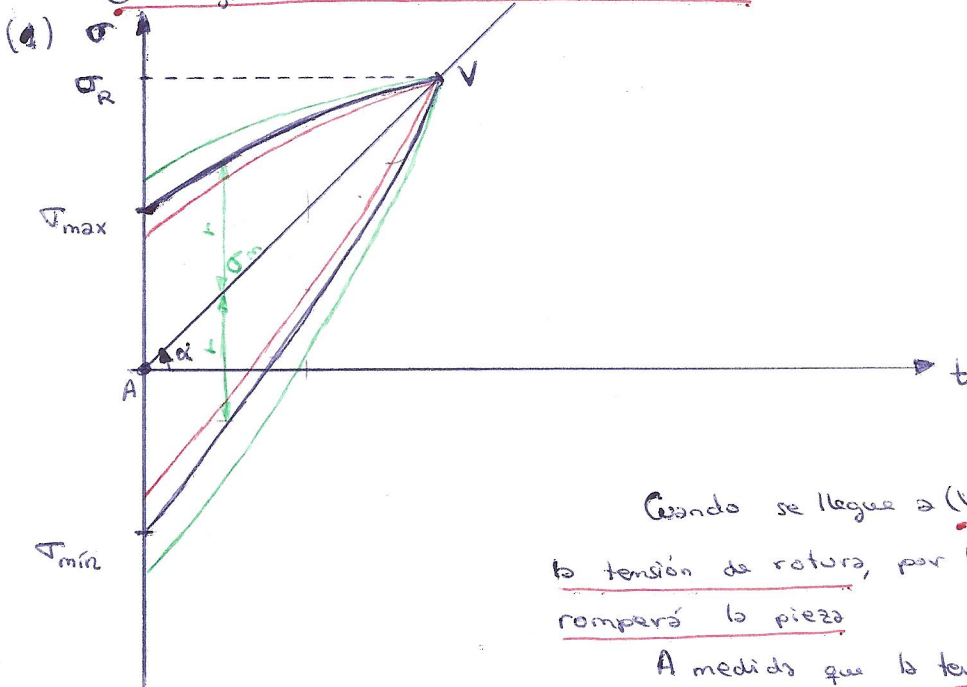 (1) σ
σR
V
σmax
σm
r
r
α
A
t
σmín
Cuando se llegue a (V
la tensión de rotura, por l
romperá la pieza
A medida que la ten